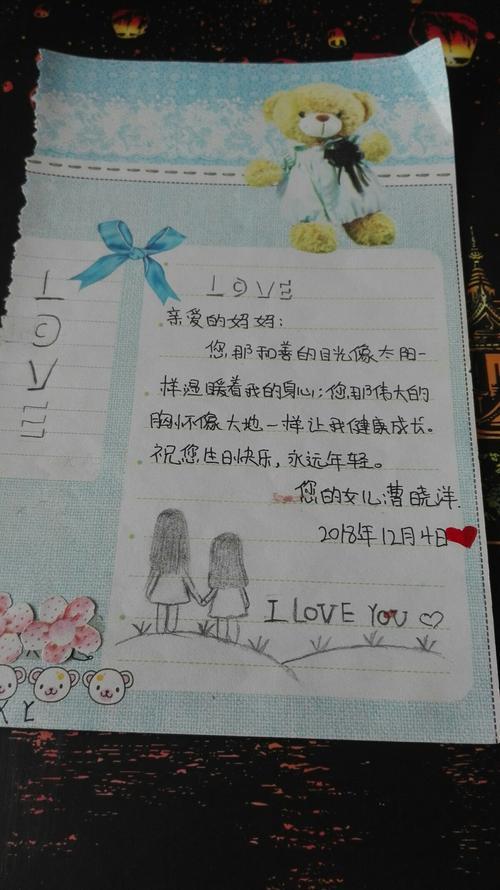 LOVE
LOVE
亲爱的妈妈:
您那和善的目光像太阳一
样温暖着我的身心;您那伟大的
胸怀像大地一样让我健康成长。
祝您生日快乐,永远年轻。
您的女儿曹晓洋
2018年12月4日
I LOVE YOU